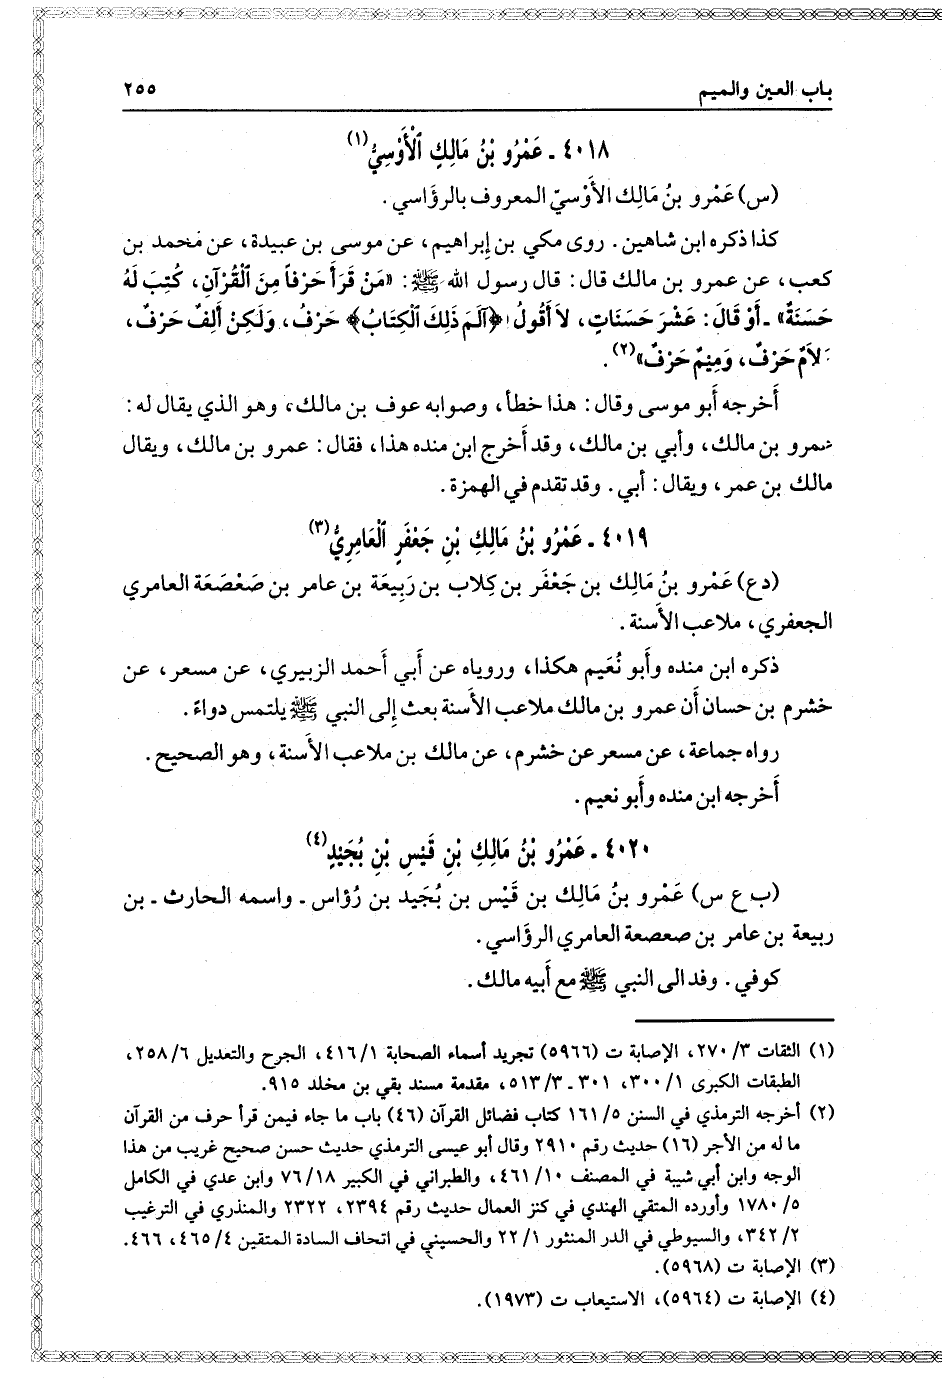 باب العين والميم ٢٥٥
٤٠١٨ ـ عَمْرُو بْنُ مَالِكٍ ٱلْأَوْسِيُّ(١)
(س) عَمْرو بنُ مَالك الأَوْسيّ المعروف بالرؤَاسي.
كذا ذكره ابن شاهين. روى مكي بن إِبراهيم، عن موسى بن عبيدة، عن محمد بن
كعب، عن عمرو بن مالك قال: قال رسول الله ﷺ: «مَنْ قَرَأَ حَرْفاً مِنَ ٱلْقُرْآنِ، كُتِبَ لَهُ
حَسَنَةٌ» ـ أَوْ قَالَ: عَشْرَ حَسَنَاتٍ، لاَ أَقُولُ: ﴿آلَمَ ذَلِكَ ٱلْكِتَابُ﴾ حَرْفٌ، وَلَكِنْ أَلِفٌ حَرْفٌ،
لاَمٌ حَرْفٌ، وَمِيْمٌ حَرْفٌ»(٢).
أَخرجه أَبو موسى وقال: هذا خطأ، وصوابه عوف بن مالك، وهو الذي يقال له:
عمرو بن مالك، وأبي بن مالك، وقد أَخرج ابن منده هذا، فقال: عمرو بن مالك، ويقال
مالك بن عمر، ويقال: أبي. وقد تقدم في الهمزة.
٤٠١٩ ـ عَمْرُو بْنُ مَالِكِ بْنِ جَعْفَرٍ ٱلْعَامِرِيُّ(٣)
(دع) عَمْرو بنُ مَالك بن جَعْفَر بن كِلاب بن رَبِيعَة بن عامر بن صَعْصَعَة العامري
الجعفري، ملاعب الأَسنة.
ذكره ابن منده وأَبو نُعَيم هكذا، وروياه عن أَبي أَحمد الزبيري، عن مسعر، عن
خشرم بن حسان أَن عمرو بن مالك ملاعب الأَسنة بعث إِلى النبي ﷺ يلتمس دواءً.
رواه جماعة، عن مسعر عن خشرم، عن مالك بن ملاعب الأَسنة، وهو الصحيح.
أَخرجه ابن منده وأَبو نعيم.
٤٠٢٠ ـ عَمْرُو بْنُ مَالِكِ بْنِ قَيْسِ بْنِ بُجَيْدٍ(٤)
(ب ع س) عَمْرو بنُ مَالك بن قَيْس بن بُجَيد بن رُؤاس ـ واسمه الحارث ـ بن
ربيعة بن عامر بن صعصعة العامري الرؤَاسي.
كوفي. وفد الى النبي ﷺ مع أَبيه مالك.
(١) الثقات ٢٧٠/٣، الإصابة ت (٥٩٦٦) تجريد أسماء الصحابة ٤١٦/١، الجرح والتعديل ٢٥٨/٦،
الطبقات الكبرى ٣٠٠/١، ٣٠١ ـ ٥١٣/٣، مقدمة مسند بقي بن مخلد ٩١٥.
(٢) أخرجه الترمذي في السنن ١٦١/٥ كتاب فضائل القرآن (٤٦) باب ما جاء فيمن قرأ حرف من القرآن
ما له من الأجر (١٦) حديث رقم ٢٩١٠ وقال أبو عيسى الترمذي حديث حسن صحيح غريب من هذا
الوجه وابن أبي شيبة في المصنف ٤٦١/١٠، والطبراني في الكبير ٧٦/١٨ وابن عدي في الكامل
١٧٨٠/٥ وأورده المتقي الهندي في كنز العمال حديث رقم ٢٣٩٤، ٢٣٢٢ والمنذري في الترغيب
٣٤٢/٢، والسيوطي في الدر المنثور ٢٢/١ والحسيني في اتحاف السادة المتقين ٤٦٥/٤، ٤٦٦.
(٣) الإصابة ت (٥٩٦٨).
(٤) الإصابة ت (٥٩٦٤)، الاستيعاب ت (١٩٧٣).